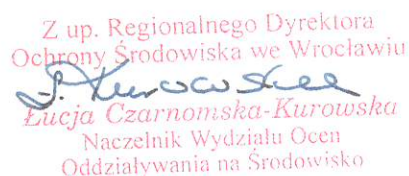 Z up. Regionalnego Dyrektora
Ochrony Środowiska we Wrocławiu
Ł. Kurowska
Łucja Czarnomska-Kurowska
Naczelnik Wydziału Ocen
Oddziaływania na Środowisko